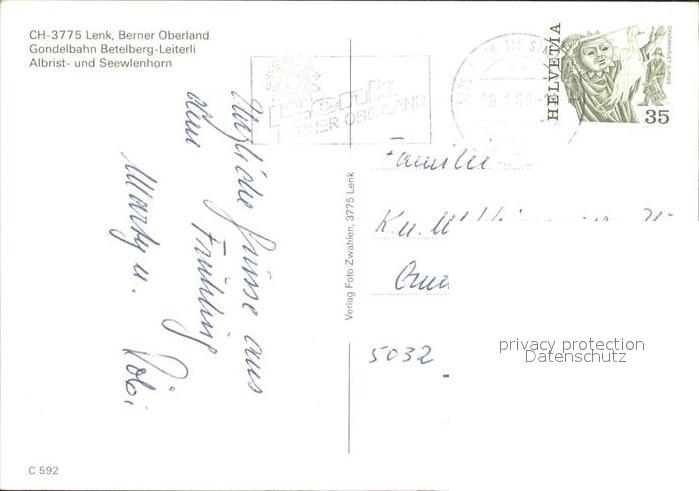 CH-3775 Lenk, Berner Oberland
Gondelbahn Betelberg-Leiterli
Albrist- und Seewlenhorn
Lenk
BERNER OBERLAND
HELVETIA
35
Herzliche Grüsse aus
dem Frühling
Marty u. Röbi
Verlag Foto Zwahlen, 3775 Lenk
Familie
5032
privacy protection
Datenschutz
C 592